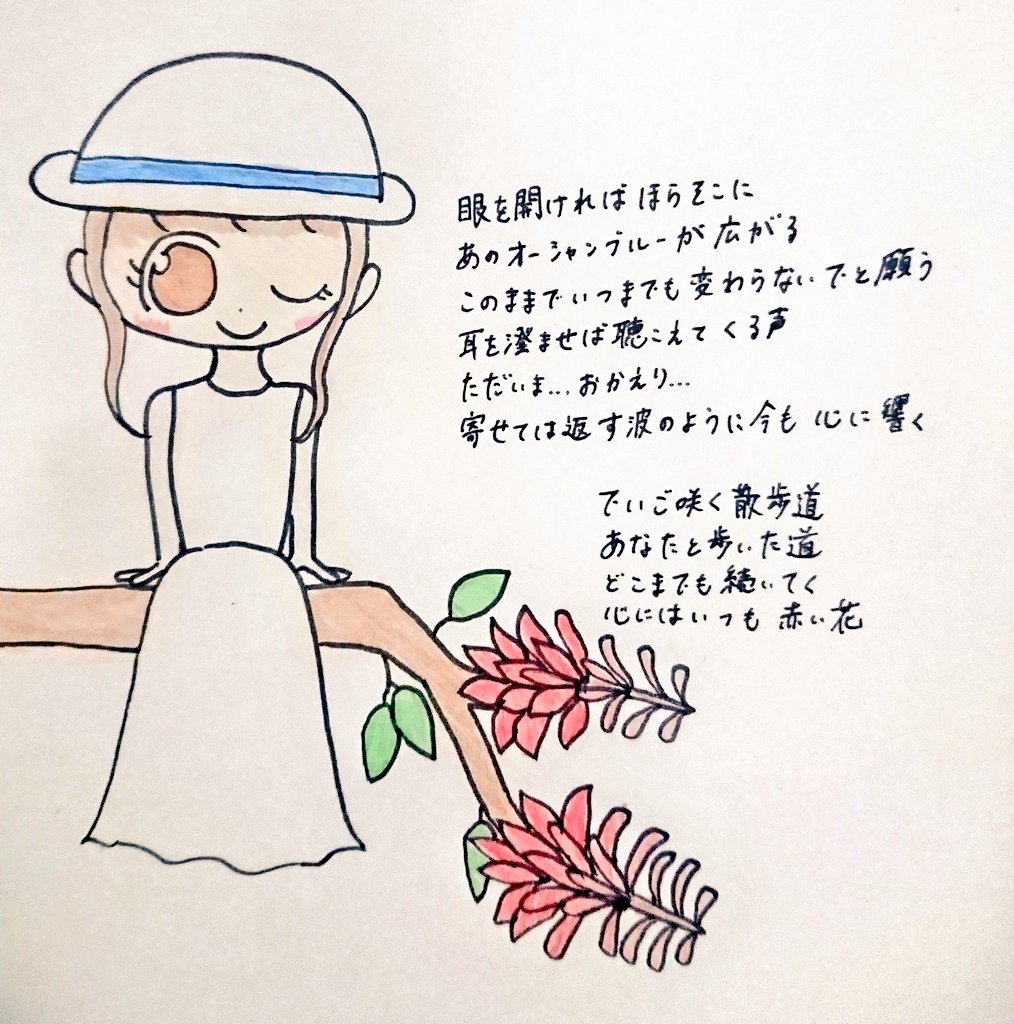 眼を開ければほらそこに
あのオーシャンブルーが広がる
このままでいつまでも変わらないでと願う
耳を澄ませば聴こえてくる声
ただいま...おかえり...
寄せては返す波のように今も心に響く
でいご咲く散歩道
あなたと歩いた道
どこまでも続いてく
心にはいつも赤い花